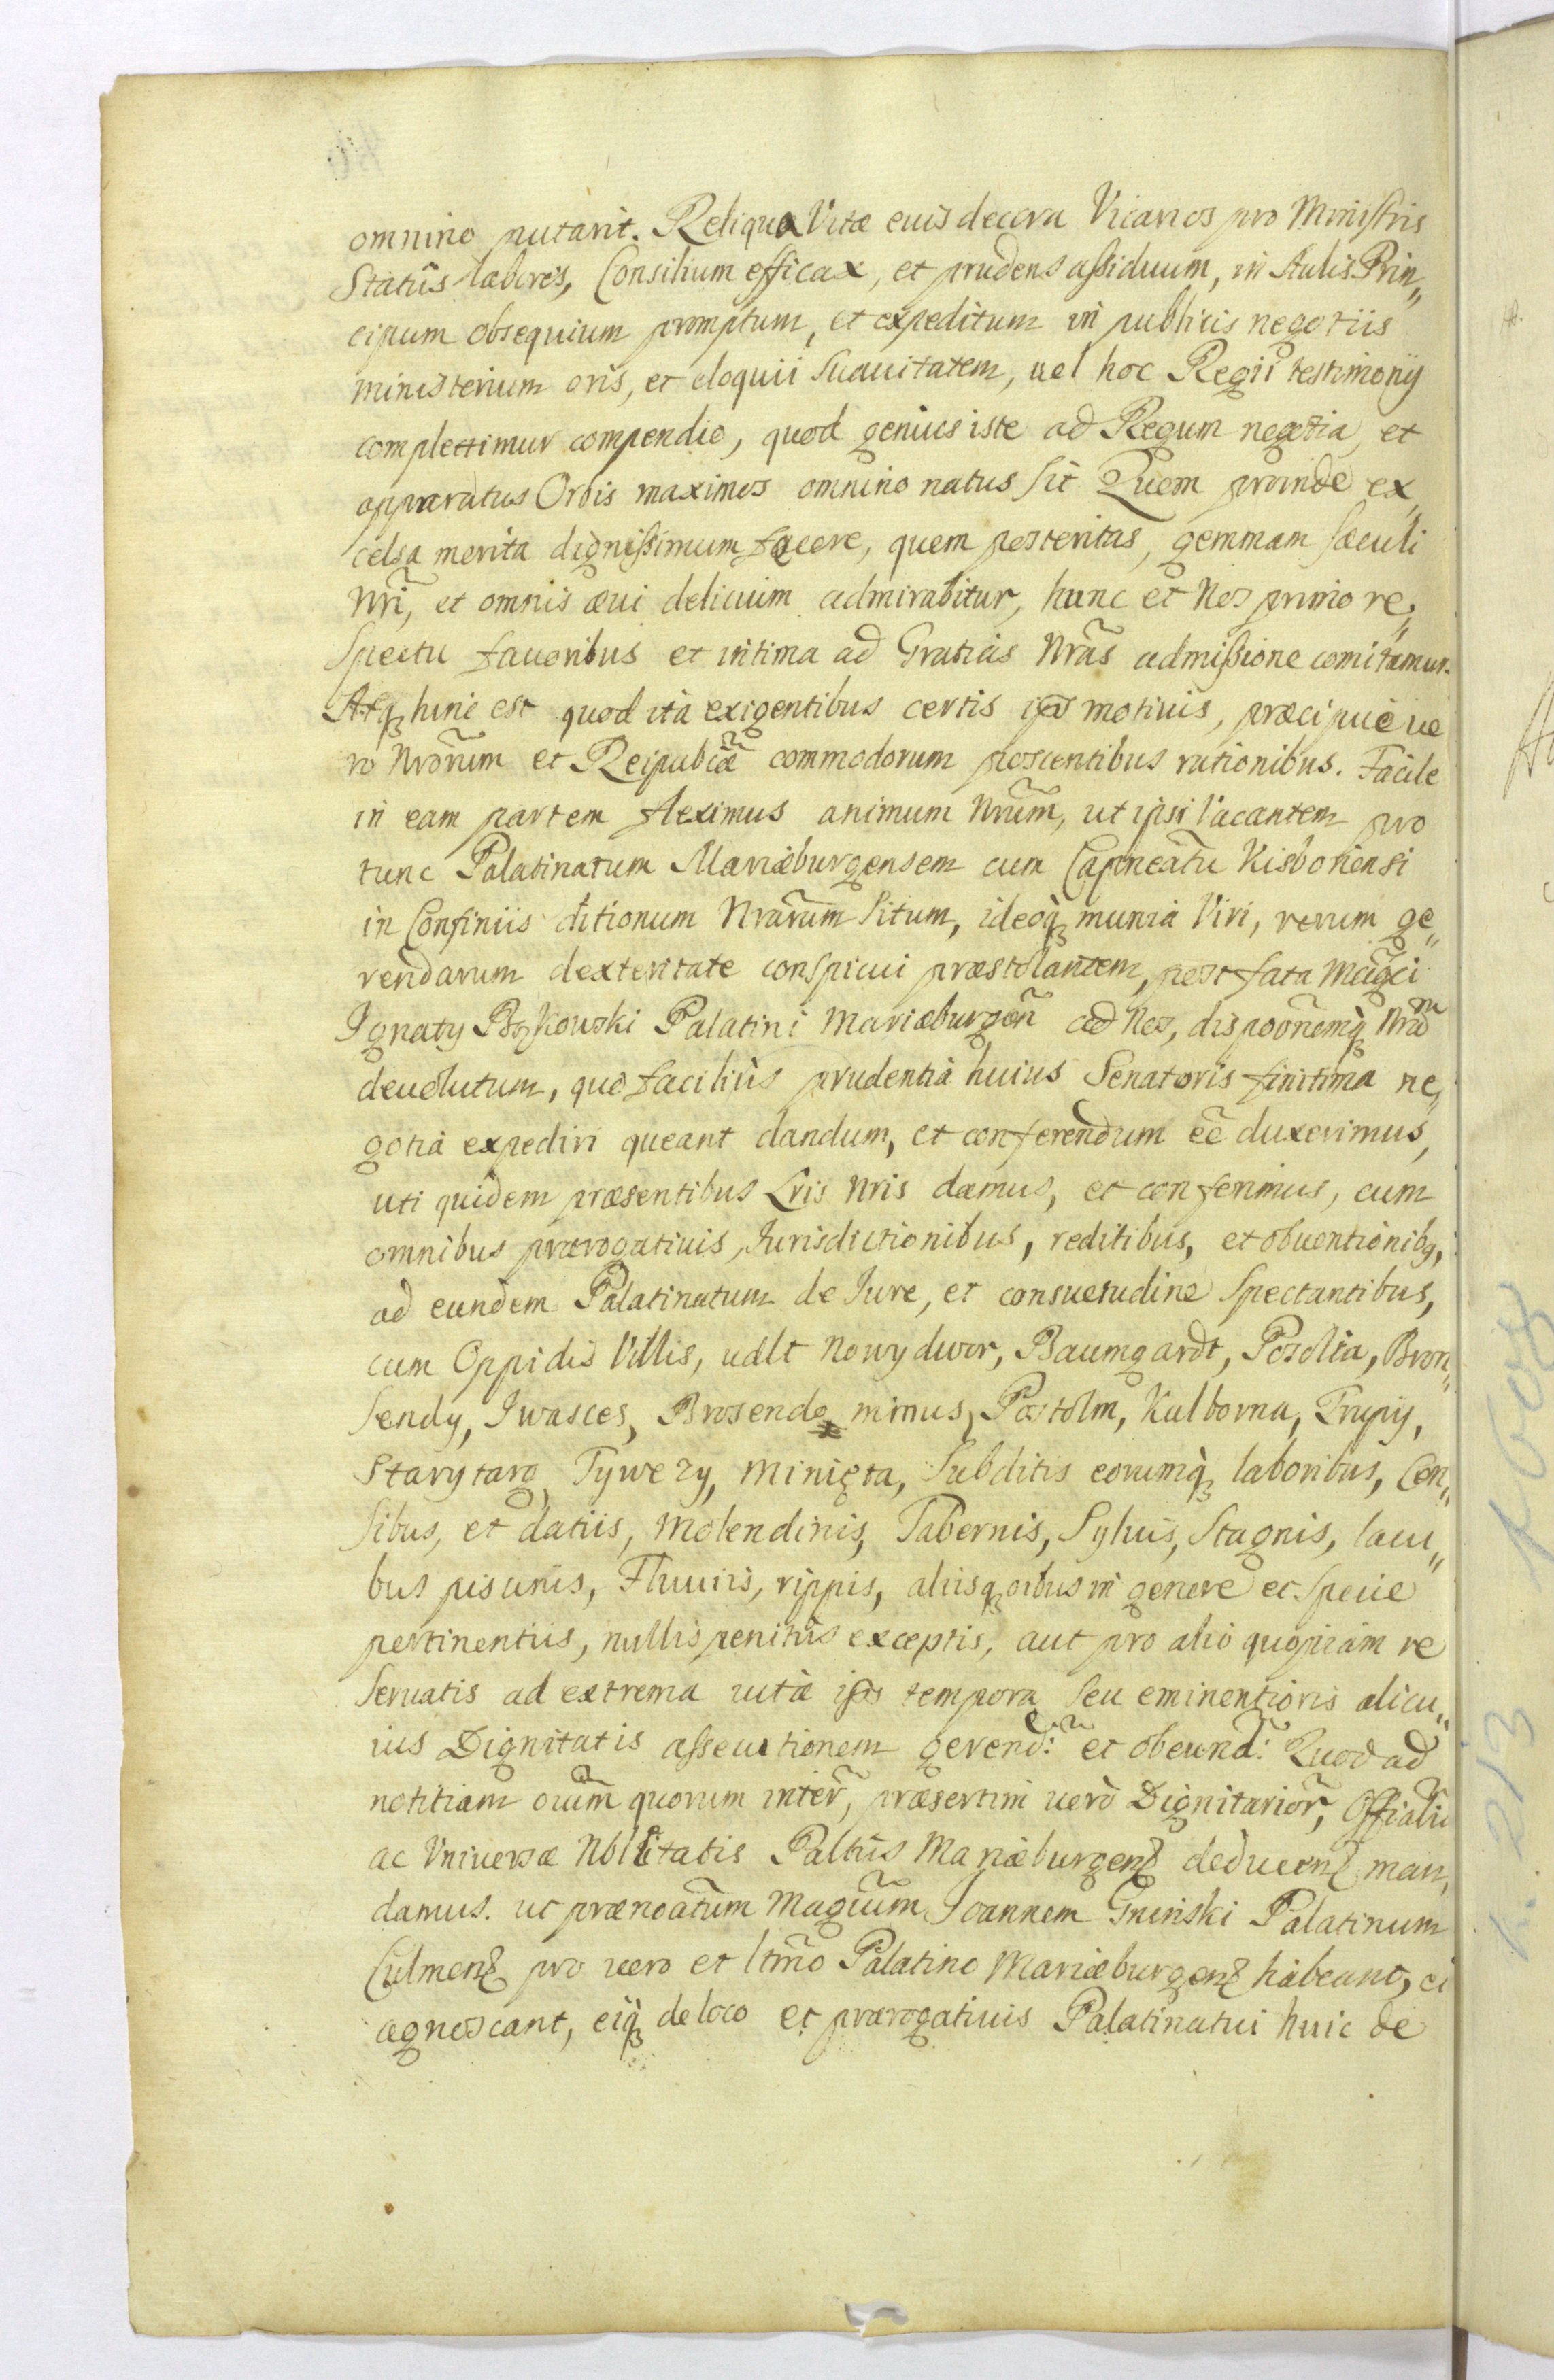 omnino putarit. Reliqua Vitæ euis decora Vicarios pro Ministris
Statûs labores, Consilium efficax, et prudens assiduum, in Aulis Prin„
cipum obsequium promptum, et expeditum in publicis negotiis
ministerium oris, et eloquii suauitatem, uel hoc Regii testimonÿ
complectimur compendio, quod genius iste ad Regum negotia, et
apparatus Orbis maximos omnino natus sit Quem proinde ex„
celsa merita dignissimum facere, quem posteritas, gemmam sæculi
Nri, et omnis æui delicium admirabitur, hunc et Nos primo re„
spectu fauoribus et intima ad Gratias Nras admissione comitamur.
Atq hinc est quod ità exigentibus certis ips motiuis, præcipuè ue
ro Nrorum et Reipublcæ commodorum poscentibus rationibus. Facile
in eam partem fleximus animum Nrum, ut ipsi Vacantem pro
tunc Palatinatum Mariæburgensem cum Capneatu Kisboriensi
in Confiniis ditionum Nrarum situm, ideoq munia Viri, rerum ge„
rendarum dexteritate conspicui præstolantem, post fata Magci
Ignaty Bąkowski Palatini Mariæburgen ad Nos, dispoonemq Nram
deuolutum, quo faciliùs prudentiâ huius Senatoris finitima ne„
gotia expediri queant dandum, et conferendum eê duxerimus,
uti quidem præsentibus Lris Nris damus, et conferimus, cum
omnibus prærogatiuis, Jurisdictionibus, reditibus, et obuentionibq,
ad eundem Palatinatum de Jure, et consuetudine spectantibus,
cum Oppidis Villis, udlt Nowydwor, Baumgardt, Posolia, Bron„
sendy, Jwasces, Brosende minus, Postolm, Kulborna, Trupÿ,
Starytarg, Tywezy, Minięta, subditis eorumq laboribus, Cen„
sibus, et datiis, Molendinis, Tabernis, Syluis, Stagnis, lacu„
bus piscinis, Fluuiis, rippis, aliisq oibus in genere et specie
pertinentiis, nullis penitùs exceptis, aut pro alio quopiam re
seruatis ad extrema uitæ ips tempora seu eminentioris alicu„
ius Dignitatis assecutionem gerend: et obeund: Quod ad
notitiam ouium quorum inter, præsertim uerò Dignitarior, Offialiu
ac Vniuersæ Nobilitatis Paltûs Mariæburgen deducen man„
damus. ut prænoatum Magcum Joannem Gninski Palatinum
Culmen pro uero et ltmo Palatino Mariæburgen habeant, et
agnoscant, eiq de loco et prærogatiuis Palatinatui huic de